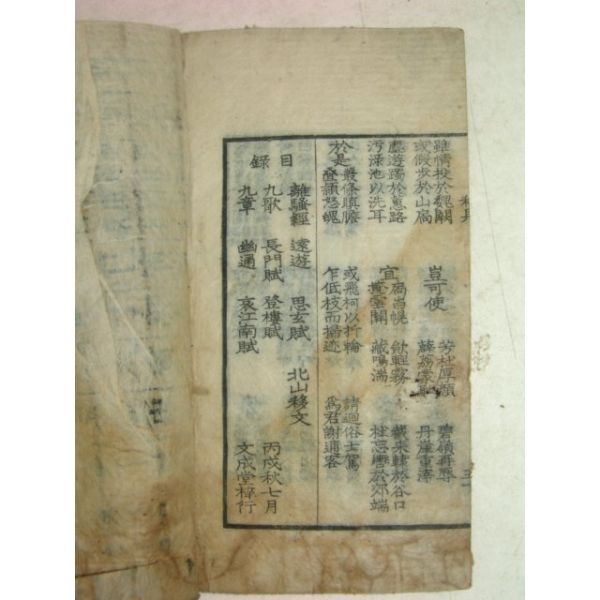 雖情投於魏闕
或假步於山扃
豈可使
芳杜厚顏
薜荔蒙恥
碧嶺再辱
丹崖重滓
塵遊躅於蕙路
汚淥池以洗耳
宜
扃岫幌
掩雲關
歛輕霧
藏鳴湍
截来轅於谷口
杜妄轡於郊端
於是
叢條瞋膽
疊穎怒魄
或飛柯以折輪
乍低枝而掃迹
請迴俗士駕
爲君謝逋客
目錄
離騷經 遠遊 思玄賦 北山移文
九歌 長門賦 登樓賦
九章 幽通 哀江南賦
丙戌秋七月
文成堂梓行